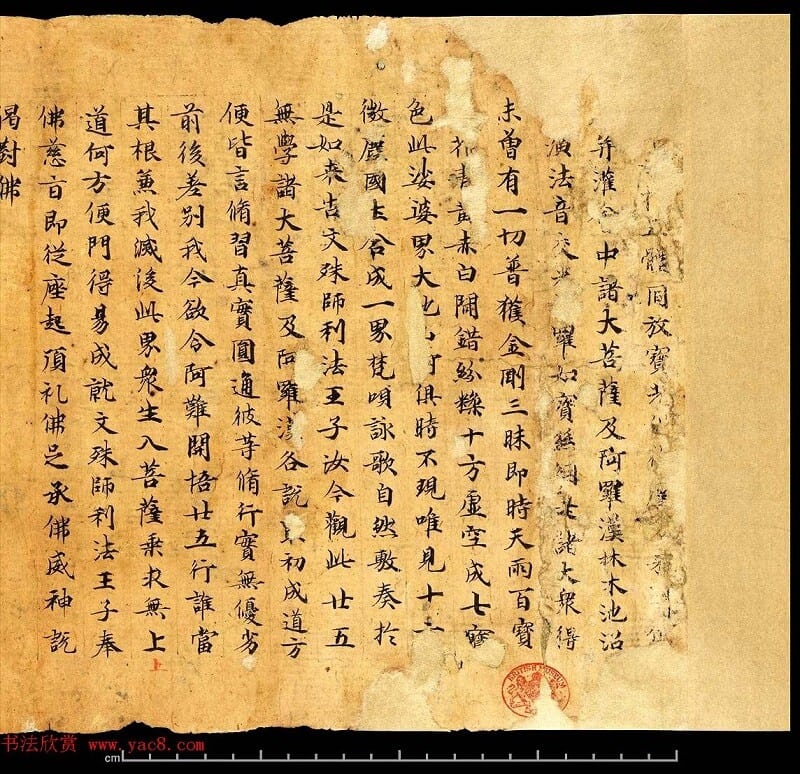 體同放寶
并灌中諸大菩薩及阿羅漢林木池沼
演法音交羅如寶絲網諸大衆得
未曾有一切普獲金剛三昧即時天雨百寶
青黃赤白間錯紛糅十方虛空成七寶
色此娑婆界大地俱時不現唯見十
微塵國土合成一界梵唄詠歌自然敷奏於
是如來告文殊師利法王子汝今觀此廿五
無學諸大菩薩及阿羅漢各說初成道方
便皆言脩習真實圓通彼等脩行實無優劣
前後差別我今欲令阿難開悟廿五行誰當
其根兼我滅後此界衆生入菩薩乘求無上
上
道何方便門得易成就文殊師利法王子奉
佛慈旨即從座起頂礼佛足承佛威神說
偈對佛
BRITISH MUSEUM
书法欣赏 www.yac8.com
cm